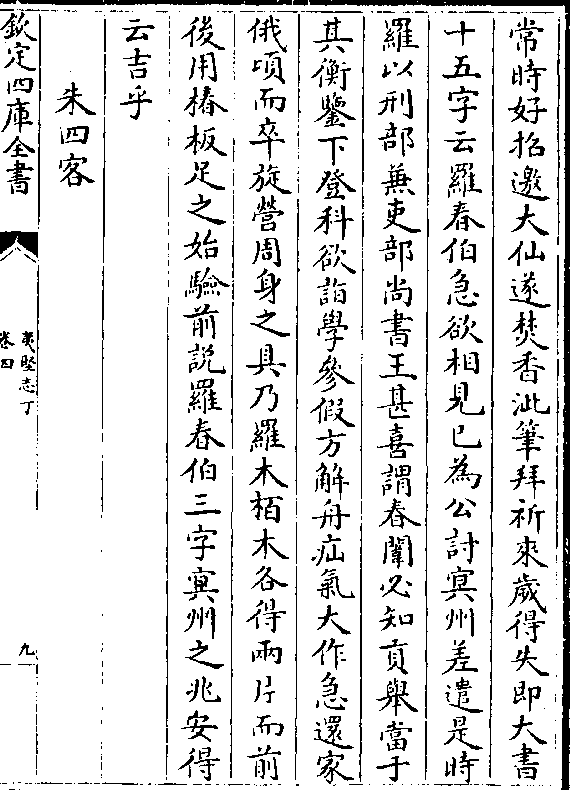 常時好招邀大仙遂焚香泚筆拜祈來歲得失即大書
十五字云羅春伯急欲相見已為公討㝠州差遣是時
羅以刑部兼吏部尚書王甚喜謂春闈必知貢舉當于
其衡鑒下登科欲詣學參假方解舟疝氣大作急還家
俄頃而卒旋營周身之具乃羅木栢木各得兩片而前
後用椿板足之始驗前説羅春伯三字㝠州之兆安得
云吉乎
朱四客
欽定四庫全書
夷堅志丁
卷四
九